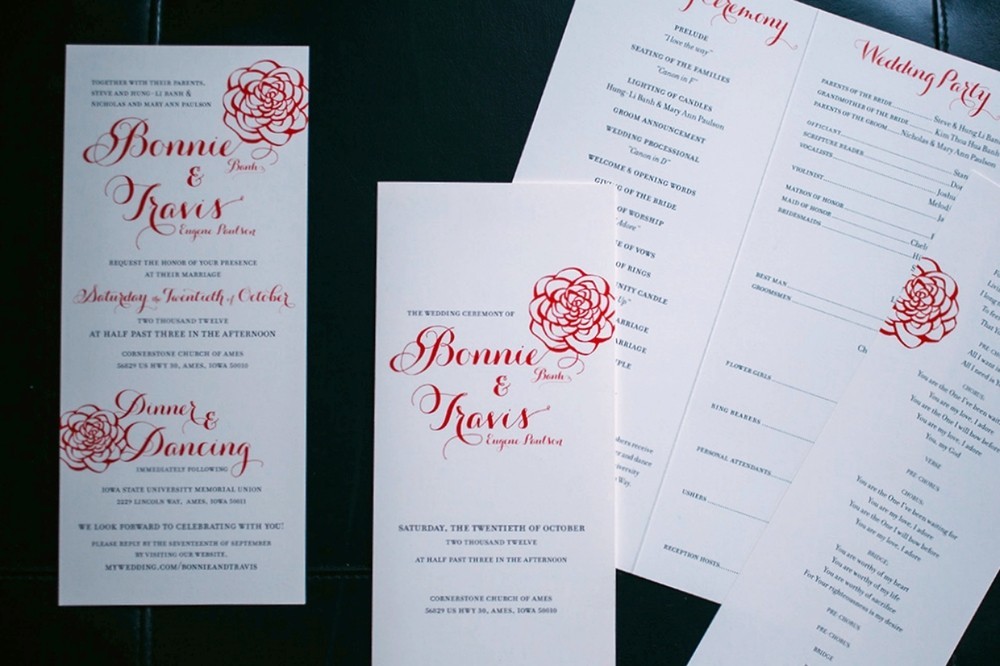 TOGETHER WITH THEIR PARENTS,
STEVE AND HUNG-LI BANH &
NICHOLAS AND MARY ANN PAULSON
Bonnie
Banh
&
Travis
Eugene Paulson
REQUEST THE HONOR OF YOUR PRESENCE
AT THEIR MARRIAGE
Saturday the Twentieth of October
TWO THOUSAND TWELVE
AT HALF PAST THREE IN THE AFTERNOON
CORNERSTONE CHURCH OF AMES
56829 US HWY 30, AMES, IOWA 50010
Dinner &
Dancing
IMMEDIATELY FOLLOWING
IOWA STATE UNIVERSITY MEMORIAL UNION
2229 LINCOLN WAY, AMES, IOWA 50011
WE LOOK FORWARD TO CELEBRATING WITH YOU!
PLEASE REPLY BY THE SEVENTEENTH OF SEPTEMBER
BY VISITING OUR WEBSITE.
MYWEDDING.COM/BONNIEANDTRAVIS
THE WEDDING CEREMONY OF
Bonnie
Banh
&
Travis
Eugene Paulson
SATURDAY, THE TWENTIETH OF OCTOBER
TWO THOUSAND TWELVE
AT HALF PAST THREE IN THE AFTERNOON
CORNERSTONE CHURCH OF AMES
56829 US HWY 30, AMES, IOWA 50010
Ceremony
PRELUDE
"I love the way"
SEATING OF THE FAMILIES
"Canon in F"
LIGHTING OF CANDLES
Hung-Li Banh & Mary Ann Paulson
GROOM ANNOUNCEMENT
WEDDING PROCESSIONAL
"Canon in D"
WELCOME & OPENING WORDS
OF THE BRIDE
OF WORSHIP
Adore"
OF VOWS
OF RINGS
CANDLE
Up"
Way.
Wedding Party
PARENTS OF THE BRIDE Steve & Hung Li Banh
GRANDMOTHER OF THE BRIDE Kim Thou Hua Banh
PARENTS OF THE GROOM Nicholas & Mary Ann Paulson
OFFICIANT
SCRIPTURE READER
VOCALISTS
VIOLINIST
MATRON OF HONOR
MAID OF HONOR
BRIDESMAIDS
BEST MAN
GROOMSMEN
FLOWER GIRLS
RING BEARERS
PERSONAL ATTENDANTS
USHERS
RECEPTION HOSTS
PRE-CHORUS
CHORUS:
You are the One I've been waiting
You are my love, I adore
You are the One I will how before
You are my love, I adore
You, my God
VERSE
PRE-CHORUS
CHORUS:
You are the One I've been waiting for
You are my love, I adore
You are the One I will how before
You are my love, I adore
BRIDGE:
You are worthy of my heart
You are worthy of my life
You are worthy of sacrifice
For Your righteousness is my desire
PRE-CHORUS
PRE-CHORUS
BRIDGE